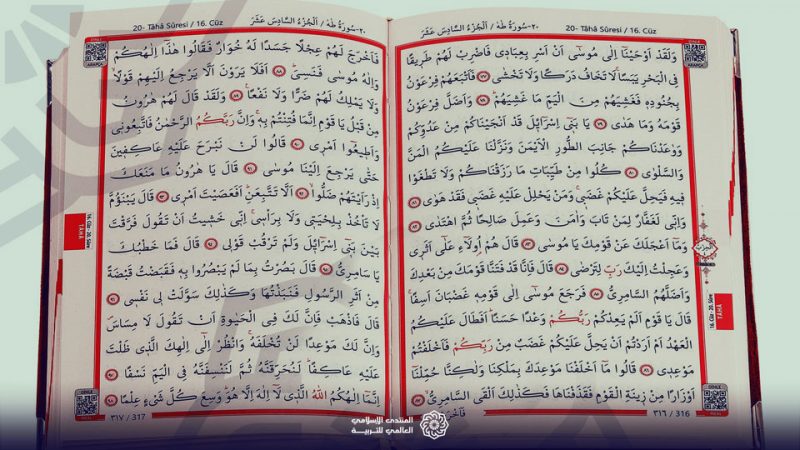 ٢٠-سُورَةُ طٰهٰ / اَلْجُزْءُ السَّادِسَ عَشَرَ 20- Tâhâ Sûresi / 16. Cüz
وَلَقَدْ اَوْحَيْنَٓا اِلٰى مُوسٰٓى اَنْ اَسْرِ بِعِبَادٖى فَاضْرِبْ لَهُمْ طَرٖيقًا
فِى الْبَحْرِ يَبَسًا لَا تَخَافُ دَرَكًا وَلَا تَخْشٰى ٧٧ فَاَتْبَعَهُمْ فِرْعَوْنُ
بِجُنُودِهٖ فَغَشِيَهُمْ مِنَ الْيَمِّ مَا غَشِيَهُمْ ٧٨ وَاَضَلَّ فِرْعَوْنُ
قَوْمَهُ وَمَا هَدٰى ٧٩ يَا بَنٖٓى اِسْرَٓائٖلَ قَدْ اَنْجَيْنَاكُمْ مِنْ عَدُوِّكُمْ
وَوٰعَدْنَاكُمْ جَانِبَ الطُّورِ الْاَيْمَنَ وَنَزَّلْنَا عَلَيْكُمُ الْمَنَّ
وَالسَّلْوٰى ٨٠ كُلُوا مِنْ طَيِّبَاتِ مَا رَزَقْنَاكُمْ وَلَا تَطْغَوْا
فٖيهِ فَيَحِلَّ عَلَيْكُمْ غَضَبٖى وَمَنْ يَحْلِلْ عَلَيْهِ غَضَبٖى فَقَدْ هَوٰى ٨١
وَاِنّٖى لَغَفَّارٌ لِمَنْ تَابَ وَاٰمَنَ وَعَمِلَ صَالِحًا ثُمَّ اهْتَدٰى ٨٢
وَمَٓا اَعْجَلَكَ عَنْ قَوْمِكَ يَا مُوسٰى ٨٣ قَالَ هُمْ اُولَٓاءِ عَلٰٓى اَثَرٖى
وَعَجِلْتُ اِلَيْكَ رَبِّ لِتَرْضٰى ٨٤ قَالَ فَاِنَّا قَدْ فَتَنَّا قَوْمَكَ مِنْ بَعْدِكَ
وَاَضَلَّهُمُ السَّامِرِىُّ ٨٥ فَرَجَعَ مُوسٰٓى اِلٰى قَوْمِهٖ غَضْبَانَ اَسِفًا
قَالَ يَا قَوْمِ اَلَمْ يَعِدْكُمْ رَبُّكُمْ وَعْدًا حَسَنًا اَفَطَالَ عَلَيْكُمُ
الْعَهْدُ اَمْ اَرَدْتُمْ اَنْ يَحِلَّ عَلَيْكُمْ غَضَبٌ مِنْ رَبِّكُمْ فَاَخْلَفْتُمْ
مَوْعِدٖى ٨٦ قَالُوا مَٓا اَخْلَفْنَا مَوْعِدَكَ بِمَلْكِنَا وَلٰكِنَّا حُمِّلْنَٓا
اَوْزَارًا مِنْ زٖينَةِ الْقَوْمِ فَقَذَفْنَاهَا فَكَذٰلِكَ اَلْقَى السَّامِرِىُّ ٨٧
٣١٦ / 316
فَاَخْرَجَ
16. Cüz - 20. Sûre
TÂHÂ
20- Tâhâ Sûresi / 16. Cüz ٢٠-سُورَةُ طٰهٰ / اَلْجُزْءُ السَّادِسَ عَشَرَ
فَاَخْرَجَ لَهُمْ عِجْلًا جَسَدًا لَهُ خُوَارٌ فَقَالُوا هٰذَٓا اِلٰهُكُمْ
وَاِلٰهُ مُوسٰى فَنَسِىَ ٨٨ اَفَلَا يَرَوْنَ اَلَّا يَرْجِعُ اِلَيْهِمْ قَوْلًا
وَلَا يَمْلِكُ لَهُمْ ضَرًّا وَلَا نَفْعًا ٨٩ وَلَقَدْ قَالَ لَهُمْ هٰرُونُ
مِنْ قَبْلُ يَا قَوْمِ اِنَّمَا فُتِنْتُمْ بِهٖ وَاِنَّ رَبَّكُمُ الرَّحْمٰنُ فَاتَّبِعُونٖى
وَاَطٖيعُٓوا اَمْرٖى ٩٠ قَالُوا لَنْ نَبْرَحَ عَلَيْهِ عَاكِفٖينَ
حَتّٰى يَرْجِعَ اِلَيْنَا مُوسٰى ٩١ قَالَ يَا هٰرُونُ مَا مَنَعَكَ
اِذْ رَاَيْتَهُمْ ضَلُّوا ٩٢ اَلَّا تَتَّبِعَنِ اَفَعَصَيْتَ اَمْرٖى ٩٣ قَالَ يَبْنَؤُمَّ
لَا تَاْخُذْ بِلِحْيَتٖى وَلَا بِرَاْسٖى اِنّٖى خَشٖيتُ اَنْ تَقُولَ فَرَّقْتَ
بَيْنَ بَنٖٓى اِسْرَٓائٖلَ وَلَمْ تَرْقُبْ قَوْلٖى ٩٤ قَالَ فَمَا خَطْبُكَ
يَا سَامِرِىُّ ٩٥ قَالَ بَصُرْتُ بِمَا لَمْ يَبْصُرُوا بِهٖ فَقَبَضْتُ قَبْضَةً
مِنْ اَثَرِ الرَّسُولِ فَنَبَذْتُهَا وَكَذٰلِكَ سَوَّلَتْ لٖى نَفْسٖى ٩٦
قَالَ فَاذْهَبْ فَاِنَّ لَكَ فِى الْحَيٰوةِ اَنْ تَقُولَ لَا مِسَاسَ
وَاِنَّ لَكَ مَوْعِدًا لَنْ تُخْلَفَهُ وَانْظُرْ اِلٰٓى اِلٰهِكَ الَّذٖى ظَلْتَ
عَلَيْهِ عَاكِفًا لَنُحَرِّقَنَّهُ ثُمَّ لَنَنْسِفَنَّهُ فِى الْيَمِّ نَسْفًا ٩٧
اِنَّمَٓا اِلٰهُكُمُ اللّٰهُ الَّذٖى لَٓا اِلٰهَ اِلَّا هُوَ وَسِعَ كُلَّ شَىْءٍ عِلْمًا ٩٨
٣١٧ / 317
16. Cüz - 20. Sûre
TÂHÂ
المنتدى الإسلامي
العالمي للتربية